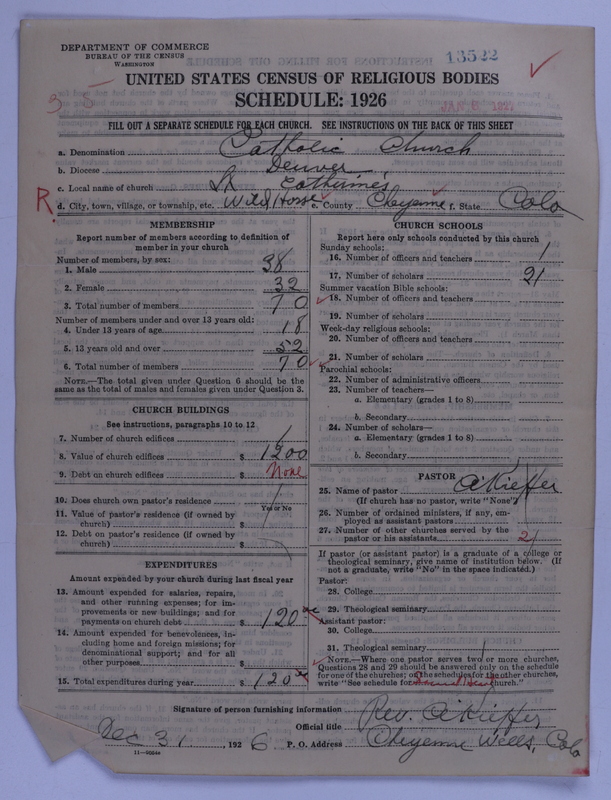 DEPARTMENT OF COMMERCE
BUREAU OF THE CENSUS
WASHINGTON
13522
UNITED STATES CENSUS OF RELIGIOUS BODIES
SCHEDULE: 1926
FILL OUT A SEPARATE SCHEDULE FOR EACH CHURCH. SEE INSTRUCTIONS ON THE BACK OF THIS SHEET
a. Denomination Catholic Church
b. Diocese Denver
c. Local name of church St Catherine's
R. d. City, town, village, or township, etc. Wild Horse e. County Cheyenne f. State Colo
MEMBERSHIP
Report number of members according to definition of
member in your church
Number of members, by sex:
1. Male 38
2. Female 32
3. Total number of members 70
Number of members under and over 13 years old:
4. Under 13 years of age 18
5. 13 years old and over 52
6. Total number of members 70
NOTE.—The total given under Question 6 should be
same as the total of males and females given under Question 3.
CHURCH BUILDINGS
See instructions, paragraphs 10 to 12
7. Number of church edifices 1
8. Value of church edifices $ 1200
9. Debt on church edifices $ None
10. Does church own pastor's residence
Yes or No
11. Value of pastor's residence (if owned by
church) $
12. Debt on pastor's residence (if owned by
church) $
EXPENDITURES
Amount expended by your church during last fiscal year
13. Amount expended for salaries, repairs,
and other running expenses; for im-
provements or new buildings; and for
payments on church debt $ 120
14. Amount expended for benevolences, in-
cluding home and foreign missions; for
denominational support; and for all
other purposes $
15. Total expenditures during year $ 120
CHURCH SCHOOLS
Report here only schools conducted by this church
Sunday schools:
16. Number of officers and teachers 1
17. Number of scholars 21
Summer vacation Bible schools:
18. Number of officers and teachers
19. Number of scholars
Week-day religious schools:
20. Number of officers and teachers
21. Number of scholars
Parochial schools:
22. Number of administrative officers
23. Number of teachers—
a. Elementary (grades 1 to 8)
b. Secondary
24. Number of scholars—
a. Elementary (grades 1 to 8)
b. Secondary
PASTOR
25. Name of pastor A Kieffer
(If church has no pastor, write "None")
26. Number of ordained ministers, if any, em-
ployed as assistant pastors
27. Number of other churches served by the
pastor or his assistants
If pastor (or assistant pastor) is a graduate of a college or
theological seminary, give name of institution below. (If
not a graduate, write "No" in the space indicated.)
Pastor:
28. College
29. Theological seminary
Assistant pastor:
30. College
31. Theological seminary
NOTE.—Where one pastor serves two or more churches,
Questions 28 and 29 should be answered only on the schedule
for one of the churches; on the schedules for the other churches,
write "See schedule for church."
Signature of person furnishing information Rev. A Kieffer
Official title
Dec 31, 1926 P. O. Address Cheyenne Wells, Colo